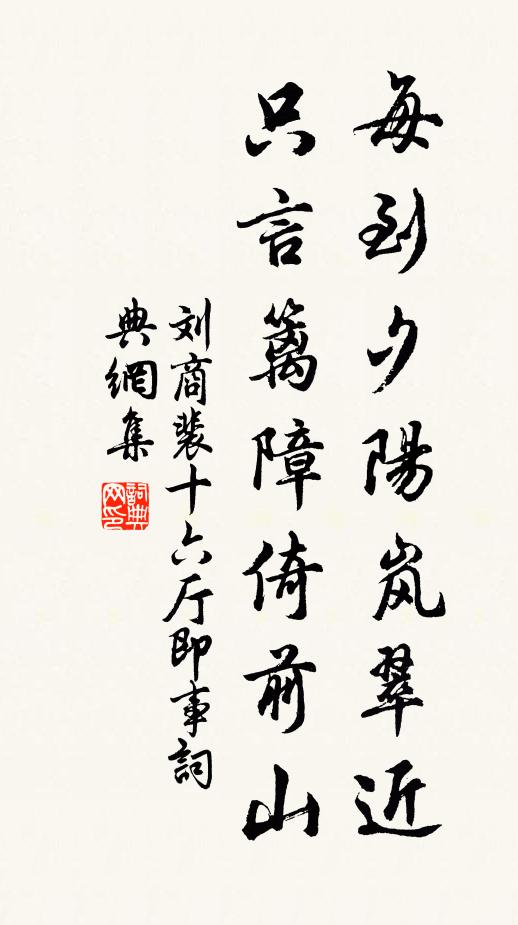 每到夕陽岚翠近
只言篱障倚前山
刘商裴十六厅即事詞
典網集
詞典
网印